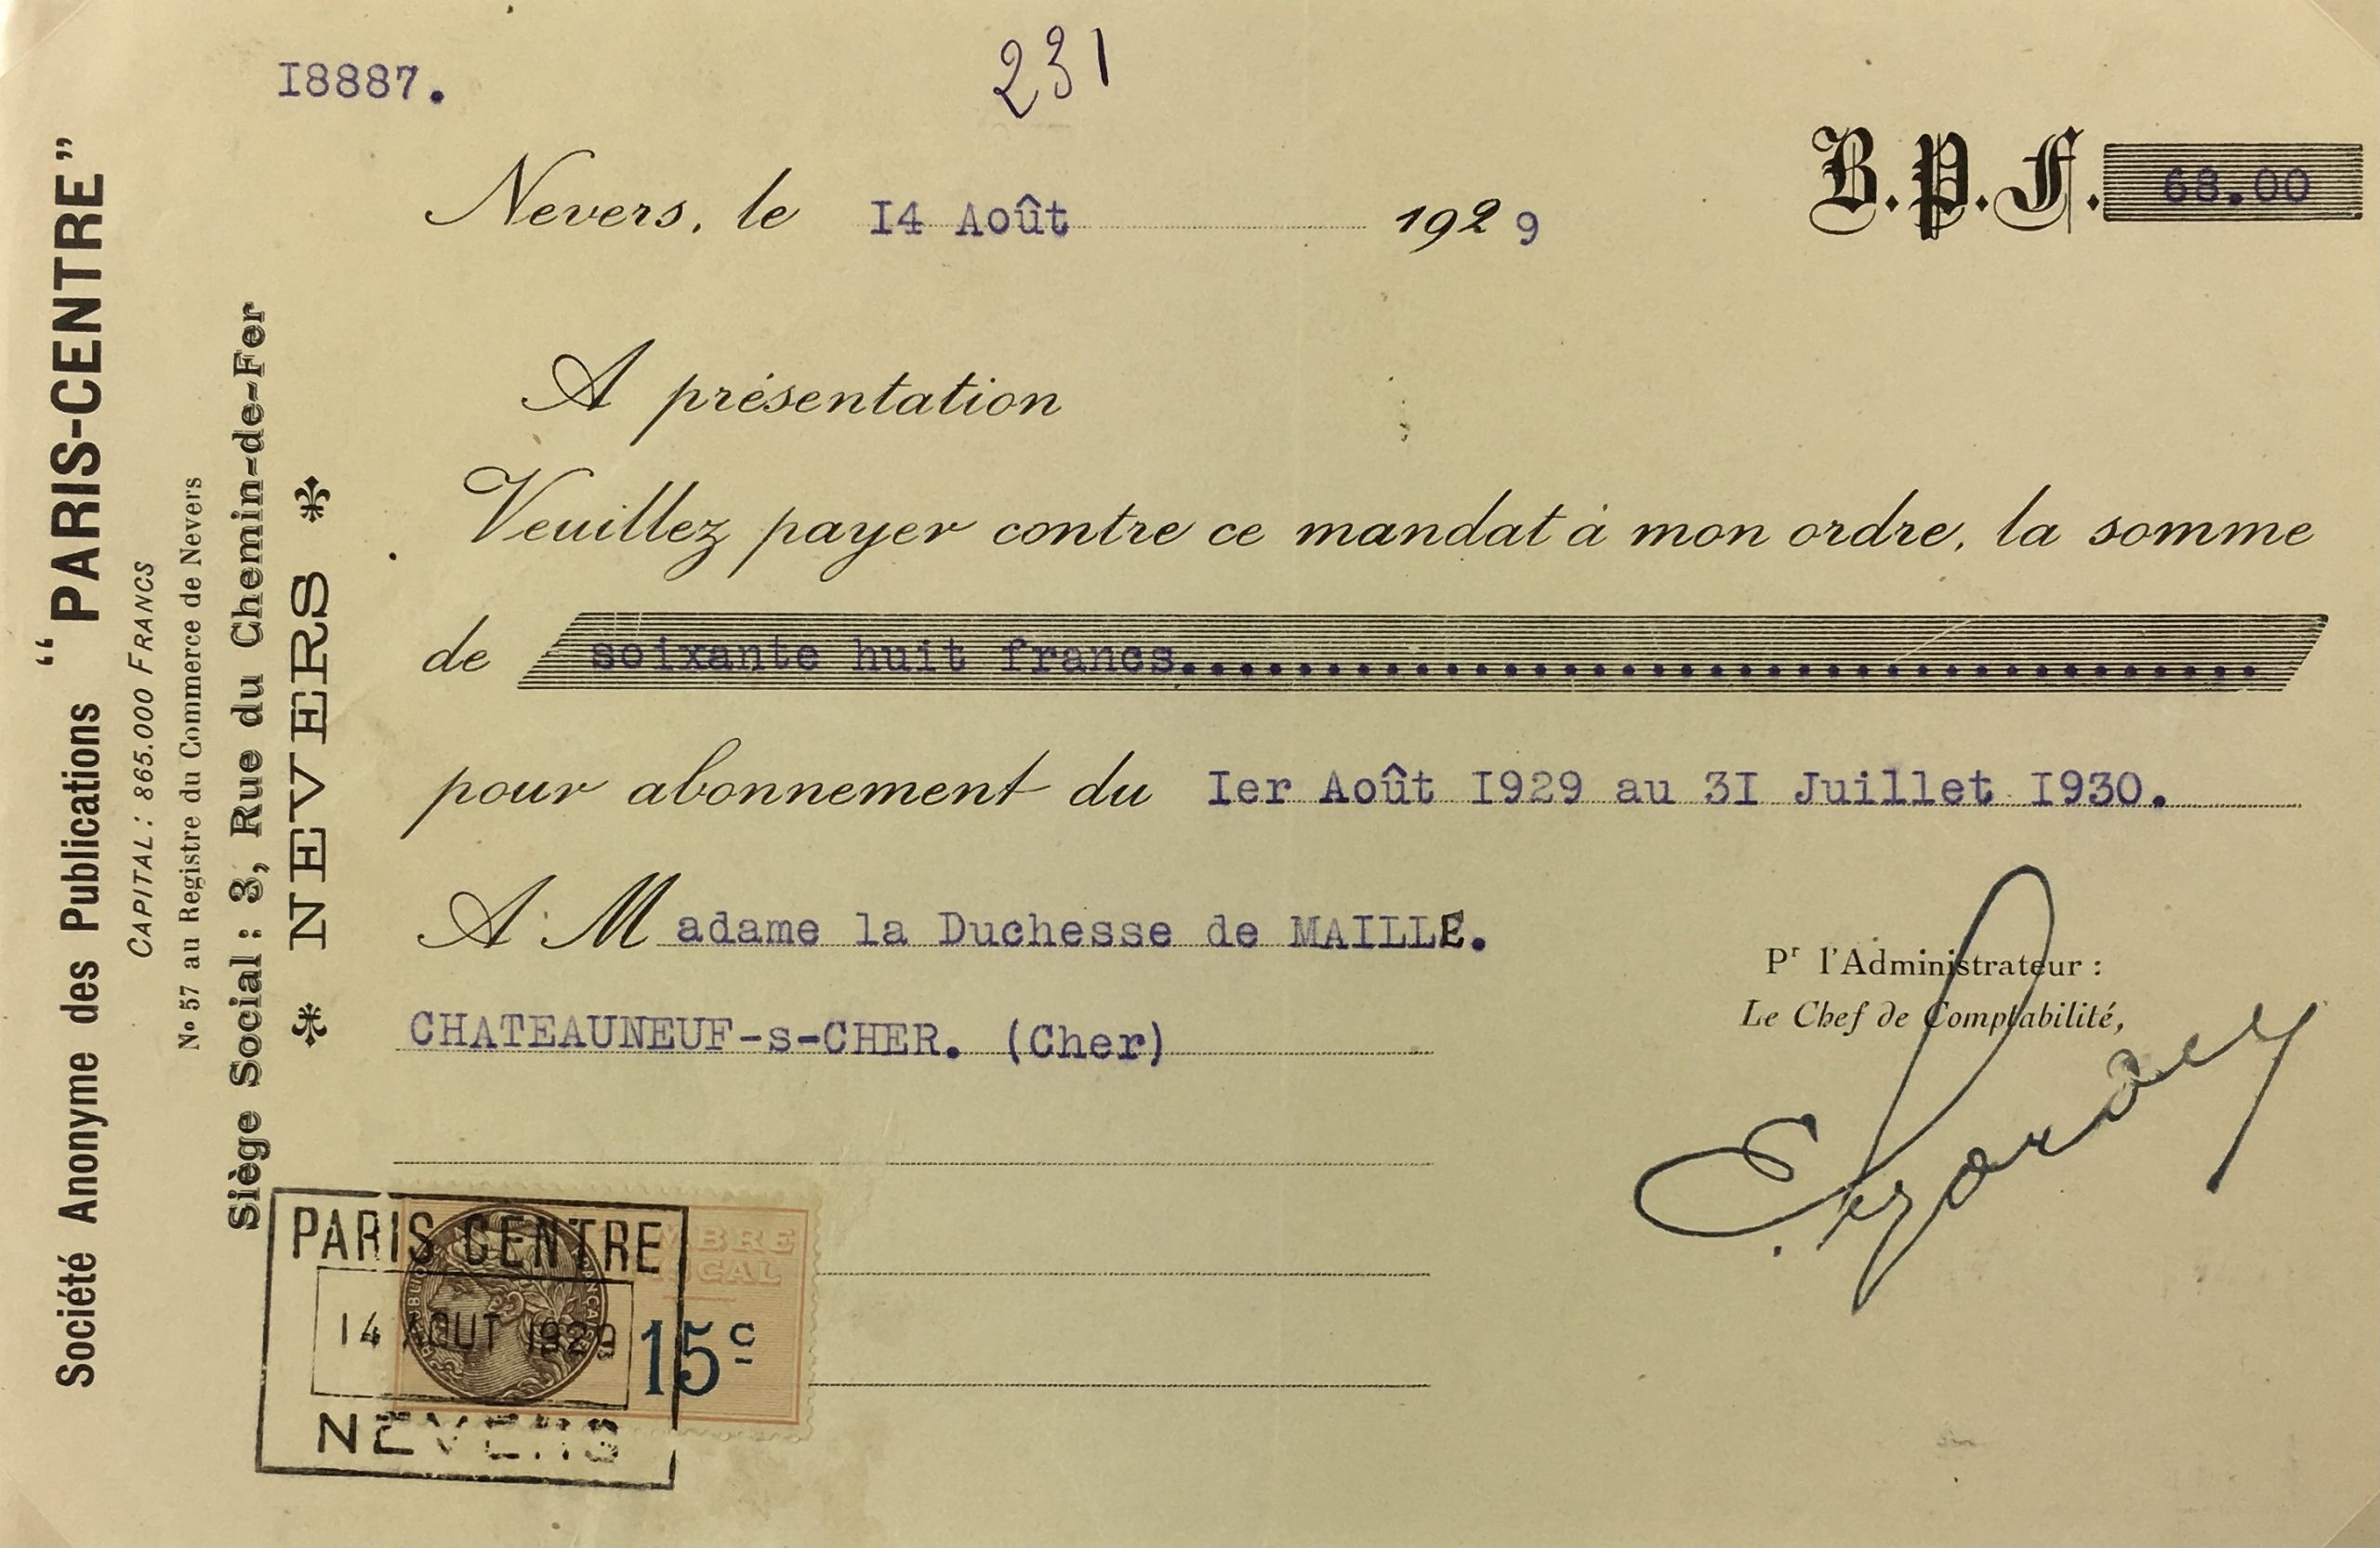 Société Anonyme des Publications “PARIS-CENTRE”
CAPITAL : 865.000 FRANCS
Nº 57 au Registre du Commerce de Nevers
Siège Social : 3, Rue du Chemin-de-Fer
NEVERS
I8887.
231
Nevers, le I4 Août 1929
B.P.F. 68.00
A présentation
Veuillez payer contre ce mandat à mon ordre, la somme
de soixante huit francs.....................................
pour abonnement du Ier Août I929 au 3I Juillet I930.
A Madame la Duchesse de MAILLE.
CHATEAUNEUF-s-CHER. (Cher)
Pr l'Administrateur :
Le Chef de Comptabilité,
PARIS CENTRE
14 AOUT 1929
NEVERS
15c